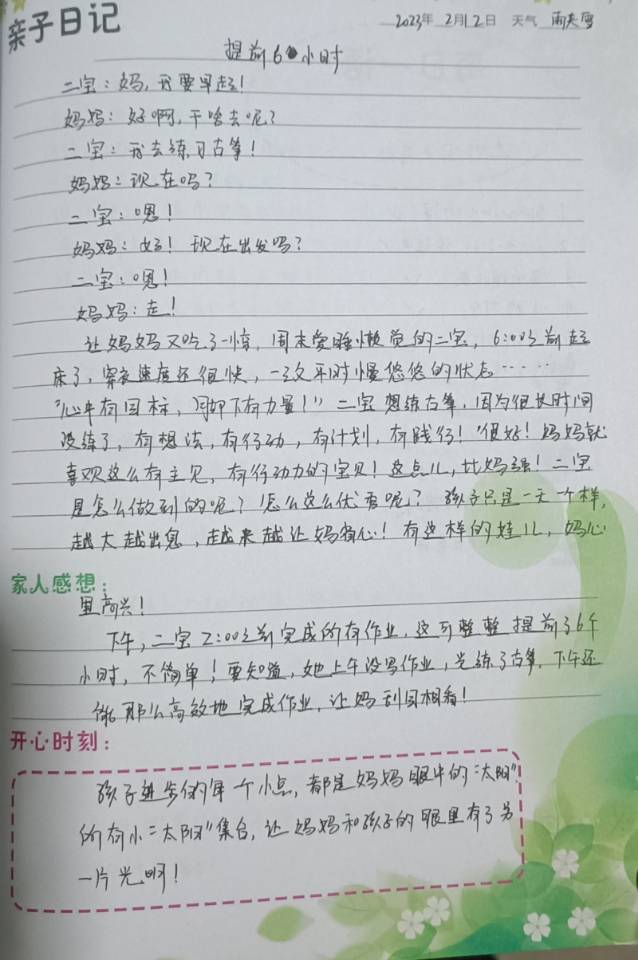 亲子日记
2023年 2月12日 天气 雨天
提前6小时
二宝：妈，我要早起！
妈妈：好啊，干啥去呢？
二宝：我去练习古筝！
妈妈：现在吗？
二宝：嗯！
妈妈：好！现在出发吗？
二宝：嗯！
妈妈：走！
让妈妈又吃了一惊，周末爱睡懒觉的二宝，6:00之前起
床了，穿衣速度还很快，一改平时慢悠悠的状态……
"心中有目标，脚下有力量！"二宝想练古筝，因为很长时间
没练了，有想法，有行动，有计划，有践行！很好！妈妈就
喜欢这么有主见，有行动力的宝贝！这点儿，比妈强！二宝
是怎么做到的呢？怎么这么优秀呢？孩子只是一天一个样，
越大越出息，越来越让妈省心！有这样的娃儿，妈心
家人感想：
里高兴！
下午，二宝2:00之前完成所有作业，这可整整提前了6个
小时，不简单！要知道，她上午没写作业，光练了古筝，下午还
能那么高效地完成作业，让妈刮目相看！
开心时刻：
孩子进步的每一个小点，都是妈妈眼中的"太阳"
所有小"太阳"集合，让妈妈和孩子的眼里有了另
一片光啊！